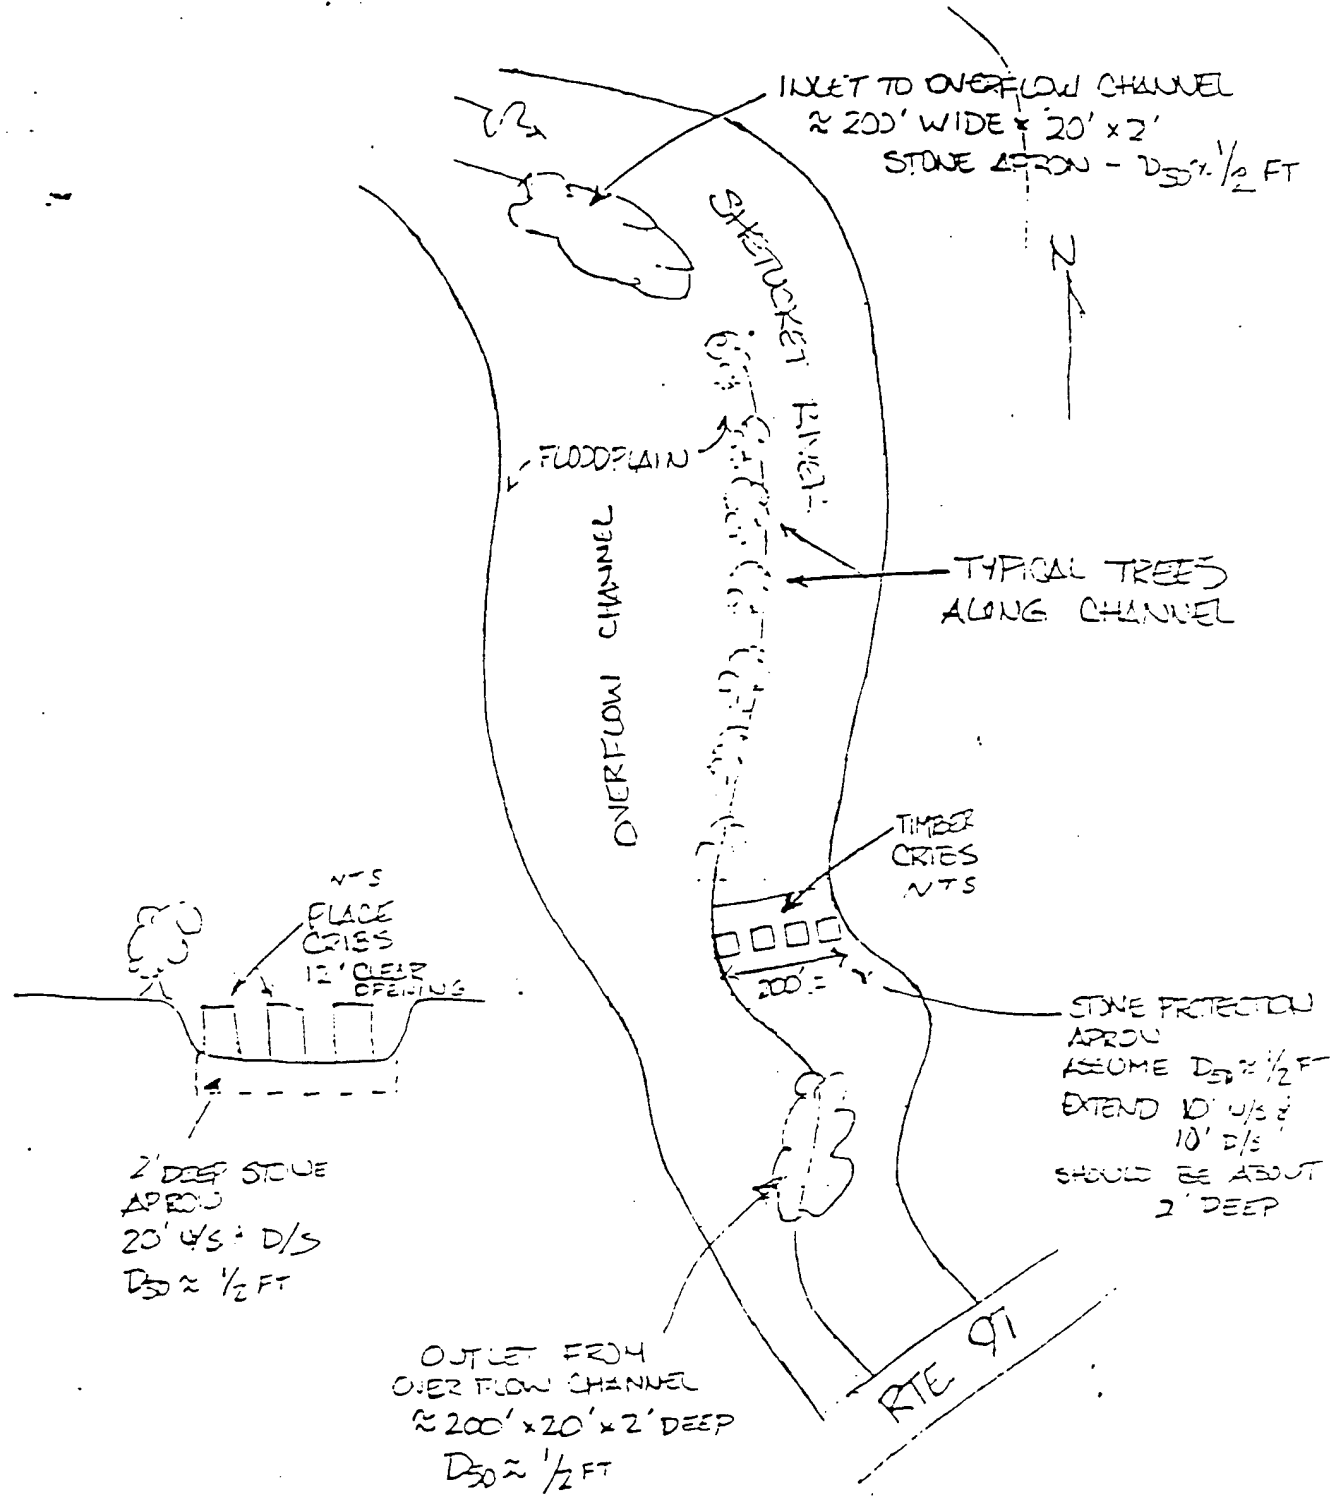 INLET TO OVERFLOW CHANNEL
≈ 200' WIDE x 20' x 2'
STONE APRON - D50 ≈ 1/2 FT
N
SHETUCKET RIVER
FLOODPLAIN
OVERFLOW CHANNEL
TYPICAL TREES
ALONG CHANNEL
TIMBER
CRIBS
NTS
200'±
NTS
PLACE
CRIBS
12' CLEAR
OPENING
STONE PROTECTION
APRON
ASSUME D50 ≈ 1/2 FT
EXTEND 10' U/S &
10' D/S
SHOULD BE ABOUT
2' DEEP
2' DEEP STONE
APRON
20' U/S & D/S
D50 ≈ 1/2 FT
OUTLET FROM
OVERFLOW CHANNEL
≈ 200' x 20' x 2' DEEP
D50 ≈ 1/2 FT
RTE 97